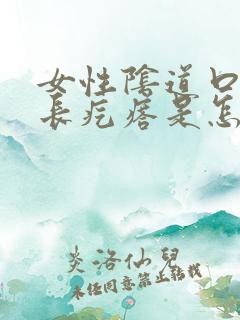 女性陰道口
長疙瘩是怎
炎洛仙兒
未经同意禁止转载